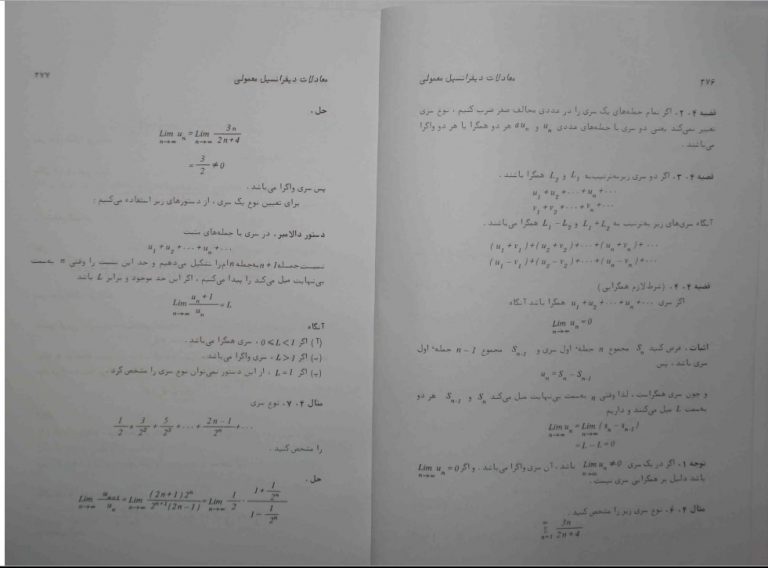 ۲۷۶
معادلات دیفرانسیل معمولی
قضیه ۴.۲. اگر تمام جمله‌های یک سری را در عددی مخالف صفر ضرب کنیم، نوع سری
تغییر نمی‌کند یعنی دو سری با جمله‌های عددی u_n و au_n هر دو همگرا یا هر دو واگرا
می‌باشند.
قضیه ۴.۳. اگر دو سری زیر به‌ترتیب به L_1 و L_2 همگرا باشند.
u_1 + u_2 + ··· + u_n + ···
v_1 + v_2 + ··· + v_n + ···
آنگاه سری‌های زیر به‌ترتیب به L_1 + L_2 و L_1 - L_2 همگرا می‌باشند.
(u_1 + v_1) + (u_2 + v_2) + ··· + (u_n + v_n) + ···
(u_1 - v_1) + (u_2 - v_2) + ··· + (u_n - v_n) + ···
قضیه ۴.۴. (شرط لازم همگرایی)
اگر سری u_1 + u_2 + ··· + u_n + ··· همگرا باشد آنگاه
Lim u_n = 0
n→∞
اثبات. فرض کنید S_n مجموع n جملهٔ اول سری و S_{n-1} مجموع n-1 جملهٔ اول
سری باشد، پس
u_n = S_n - S_{n-1}
و چون سری همگراست، لذا وقتی n به‌سمت بی‌نهایت میل می‌کند S_n و S_{n-1} هر دو
به‌سمت L میل می‌کنند و داریم
Lim u_n = Lim (s_n - s_{n-1})
n→∞ n→∞
= L - L = 0
توجه ۱. اگر در یک سری Lim u_n ≠ 0 باشد، آن سری واگرا می‌باشد. و اگر Lim u_n = 0
n→∞ n→∞
باشد دلیل بر همگرایی سری نیست.
مثال ۴.۶. نوع سری زیر را مشخص کنید.
∞ 3n
Σ ———
n=1 2n+4
معادلات دیفرانسیل معمولی
۲۷۷
حل.
Lim u_n = Lim 3n / 2n+4
n→∞ n→∞
= 3/2 ≠ 0
پس سری واگرا می‌باشد.
برای تعیین نوع یک سری، از دستورهای زیر استفاده می‌کنیم:
دستور دالامبر. در سری با جمله‌های مثبت
u_1 + u_2 + ··· + u_n + ···
نسبت جمله n+1 به جمله n ام را تشکیل می‌دهیم و حد این نسبت را وقتی n به‌سمت
بی‌نهایت میل می‌کند را پیدا می‌کنیم، اگر این حد موجود و برابر L باشد
Lim u_n+1 / u_n = L
n→∞
آنگاه
(آ) اگر 0 ⩽ L < 1، سری همگرا می‌باشد.
(ب) اگر L > 1، سری واگرا می‌باشد.
(پ) اگر L = 1، از این دستور نمی‌توان نوع سری را مشخص کرد.
مثال ۴.۷. نوع سری
1/2 + 3/2^2 + 5/2^3 + ··· + 2n-1/2^n + ···
را مشخص کنید.
حل.
Lim u_{n+1}/u_n = Lim (2n+1)2^n / 2^{n+1}(2n-1) = Lim 1/2 · (1 + 1/2^n) / (1 - 1/2^n)
n→∞ n→∞ n→∞